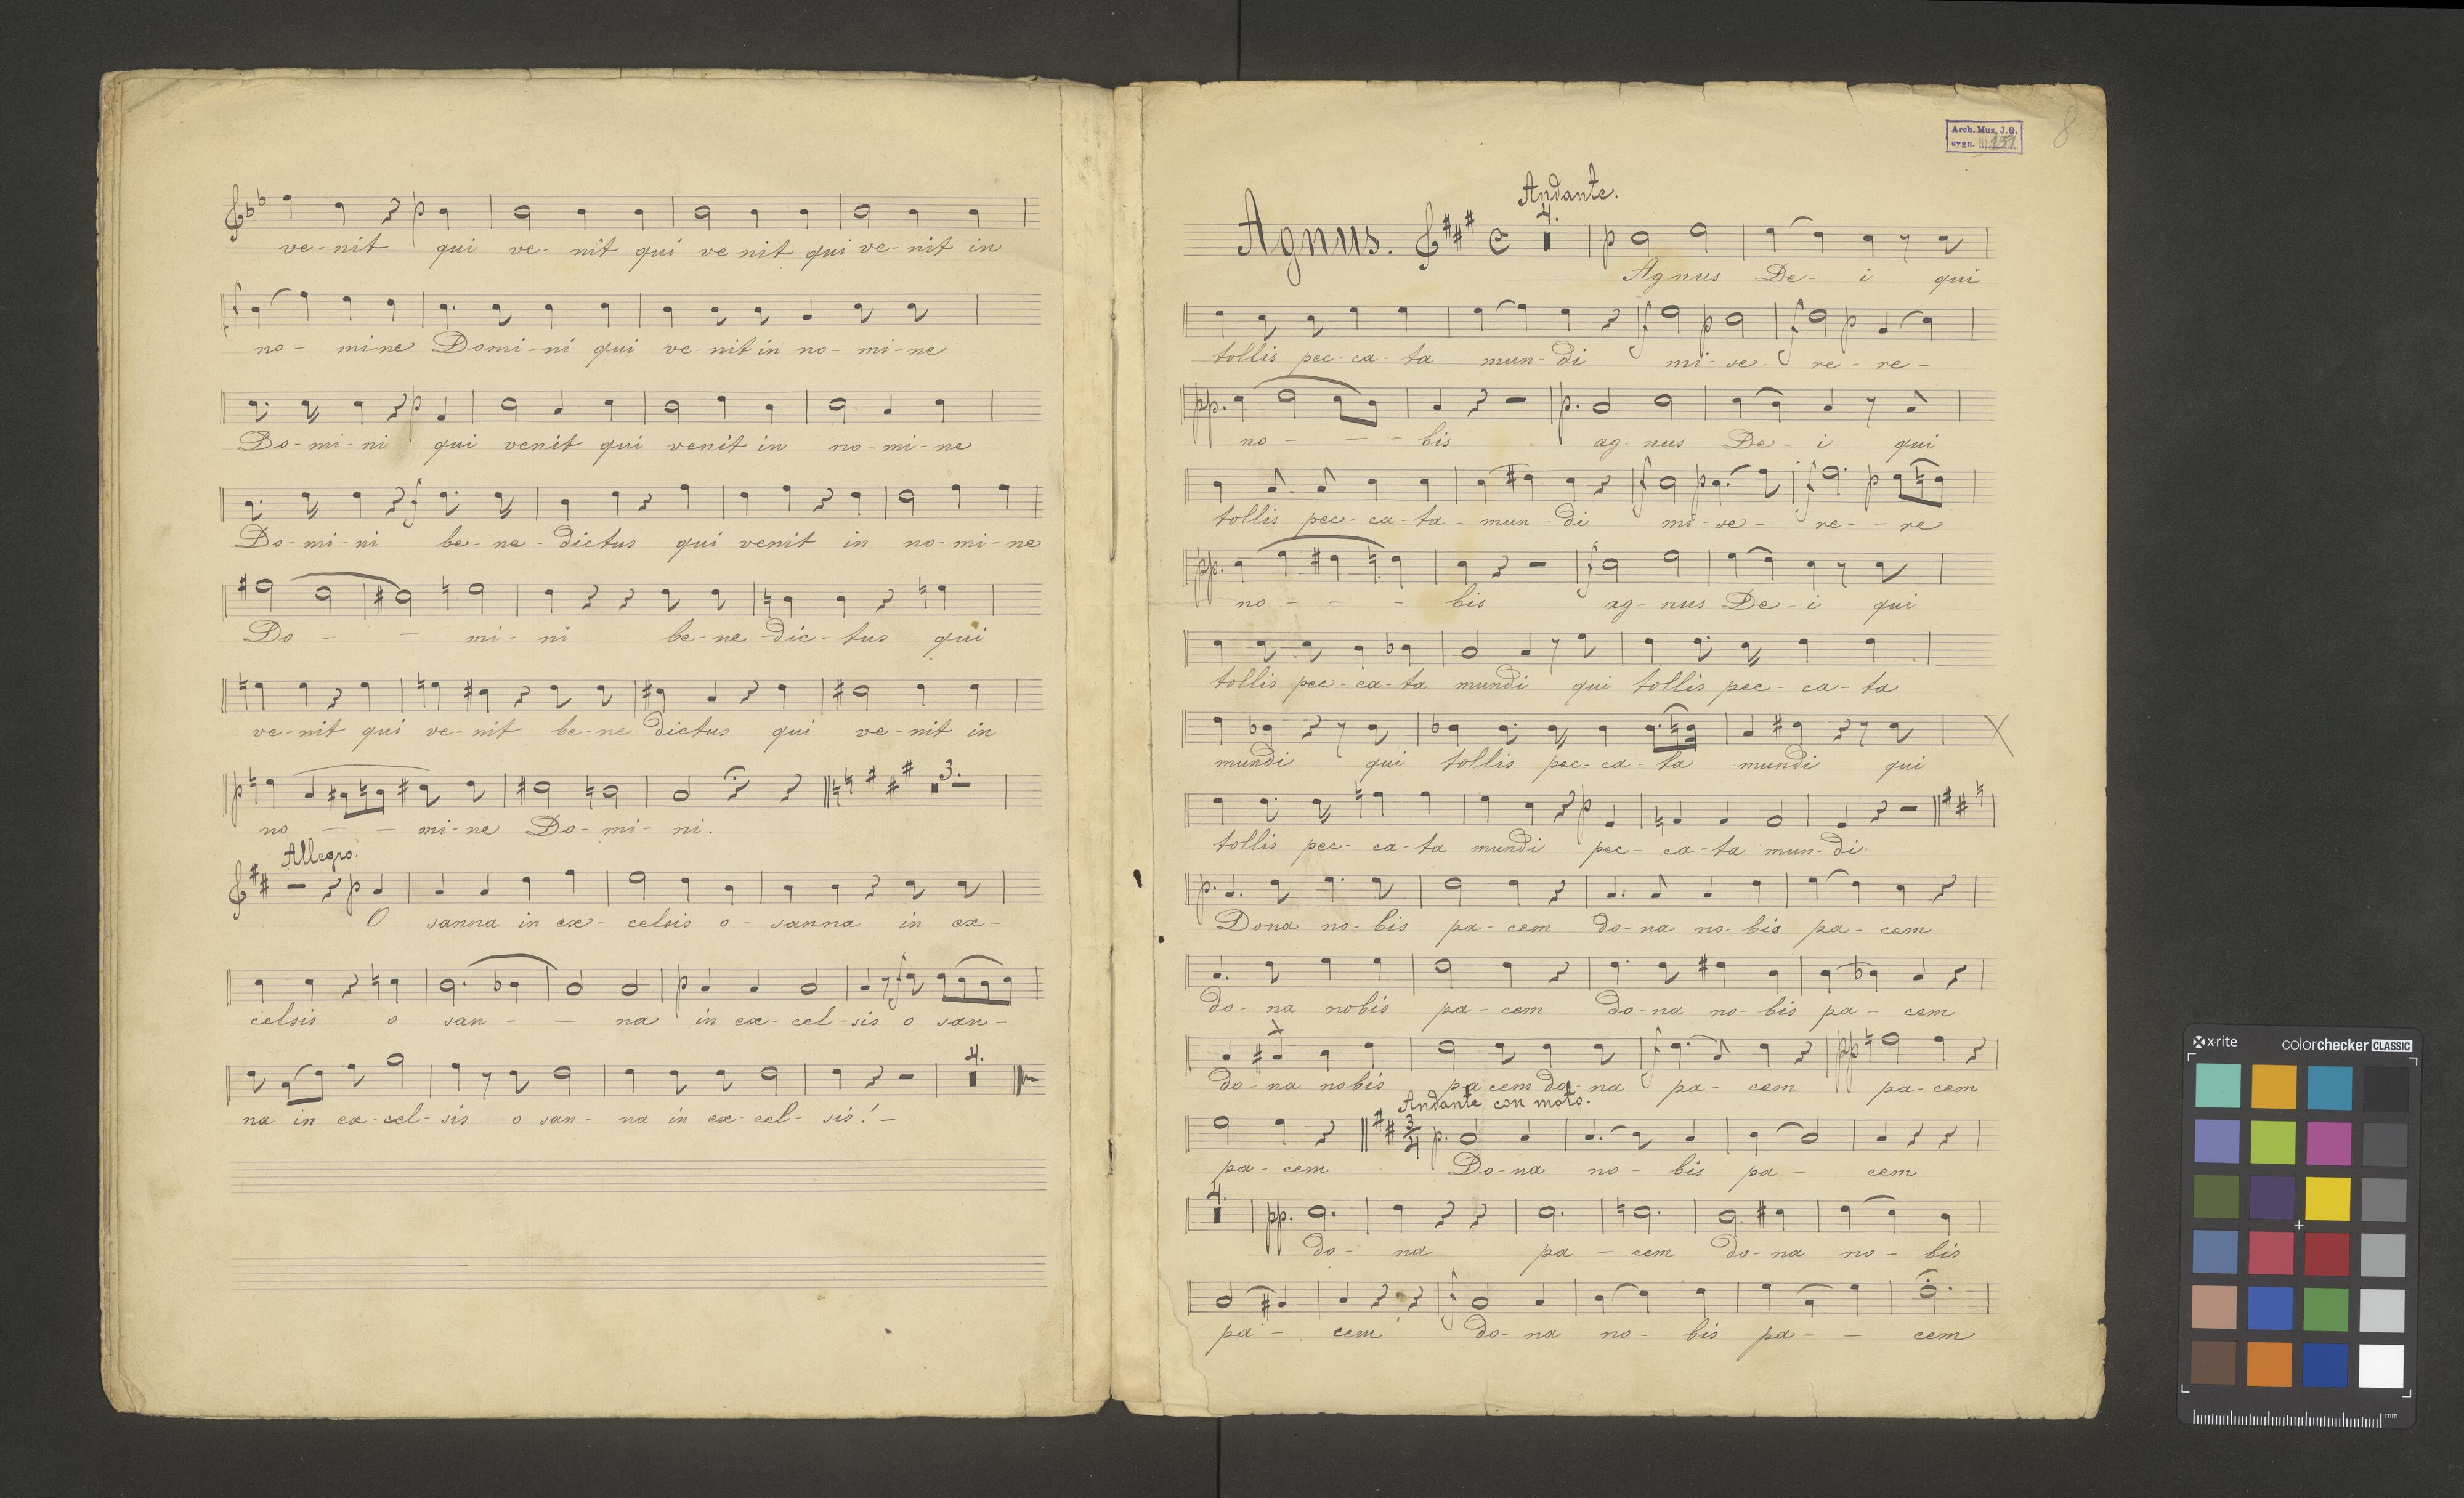 ve-nit qui ve-nit qui ve nit qui ve-nit in
no-mine Domi-ni qui ve-nit in no-mi-ne
Do-mi-ni qui venit qui venit in no-mi-ne
Do-mi-ni be-ne-dictus qui venit in no-mi-ne
Do - - mi-ni be-ne-dic-tus qui
ve-nit qui ve-nit be-ne dictus qui ve-nit in
3.
no - - mi-ne Do-mi-ni.
Allegro.
O sanna in ex-celsis o-sanna in ex-
celsis o san - - na in ex-cel-sis o san-
4.
na in ex-cel-sis o san-na in ex-cel-sis! -
Arch. Muz. J.G.
sygn.
8
Andante.
4.
Agnus.
Agnus De-i qui
tollis pec-ca-ta mun-di mi-se-re-re-
pp.
no - - - bis ag-nus De-i qui
tollis pec-ca-ta-mun-di mi-se-re--re
pp.
no - - - bis ag-nus De-i qui
tollis pec-ca-ta mundi qui tollis pec-ca-ta
mundi qui tollis pec-ca-ta mundi qui
tollis pec-ca-ta mundi pec-ca-ta mun-di
Dona no-bis pa-cem do-na no-bis pa-cem
do-na nobis pa-cem do-na no-bis pa-cem
pp
do-na nobis pa cem do-na pa-cem pa-cem
Andante con moto.
3/4 p.
pa-cem Do-na no-bis pa-cem
4. pp.
do-na pa-cem do-na no-bis
pa-cem do-na no-bis pa - - cem
x-rite colorchecker CLASSIC
mm